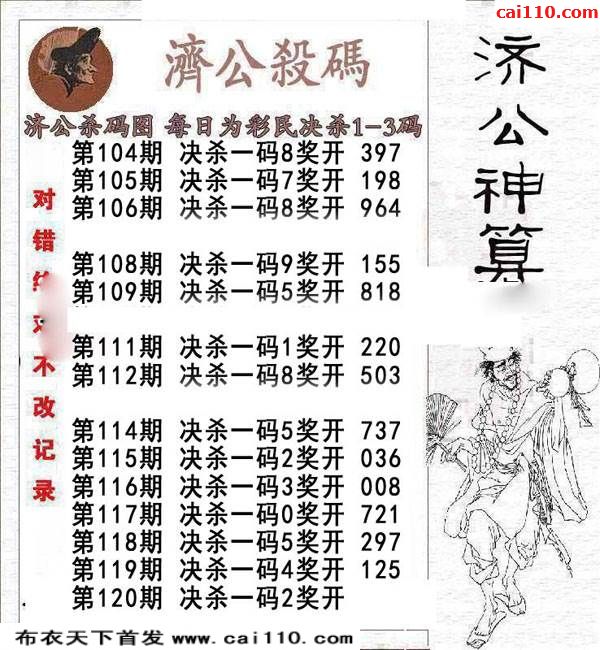 cai110.com
濟公殺碼
济公杀码图 每日为彩民决杀1-3码
第104期 决杀一码8奖开 397
第105期 决杀一码7奖开 198
第106期 决杀一码8奖开 964
第108期 决杀一码9奖开 155
第109期 决杀一码5奖开 818
第111期 决杀一码1奖开 220
第112期 决杀一码8奖开 503
第114期 决杀一码5奖开 737
第115期 决杀一码2奖开 036
第116期 决杀一码3奖开 008
第117期 决杀一码0奖开 721
第118期 决杀一码5奖开 297
第119期 决杀一码4奖开 125
第120期 决杀一码2奖开
对错
不改记录
济公神算
布衣天下首发 www.cai110.com